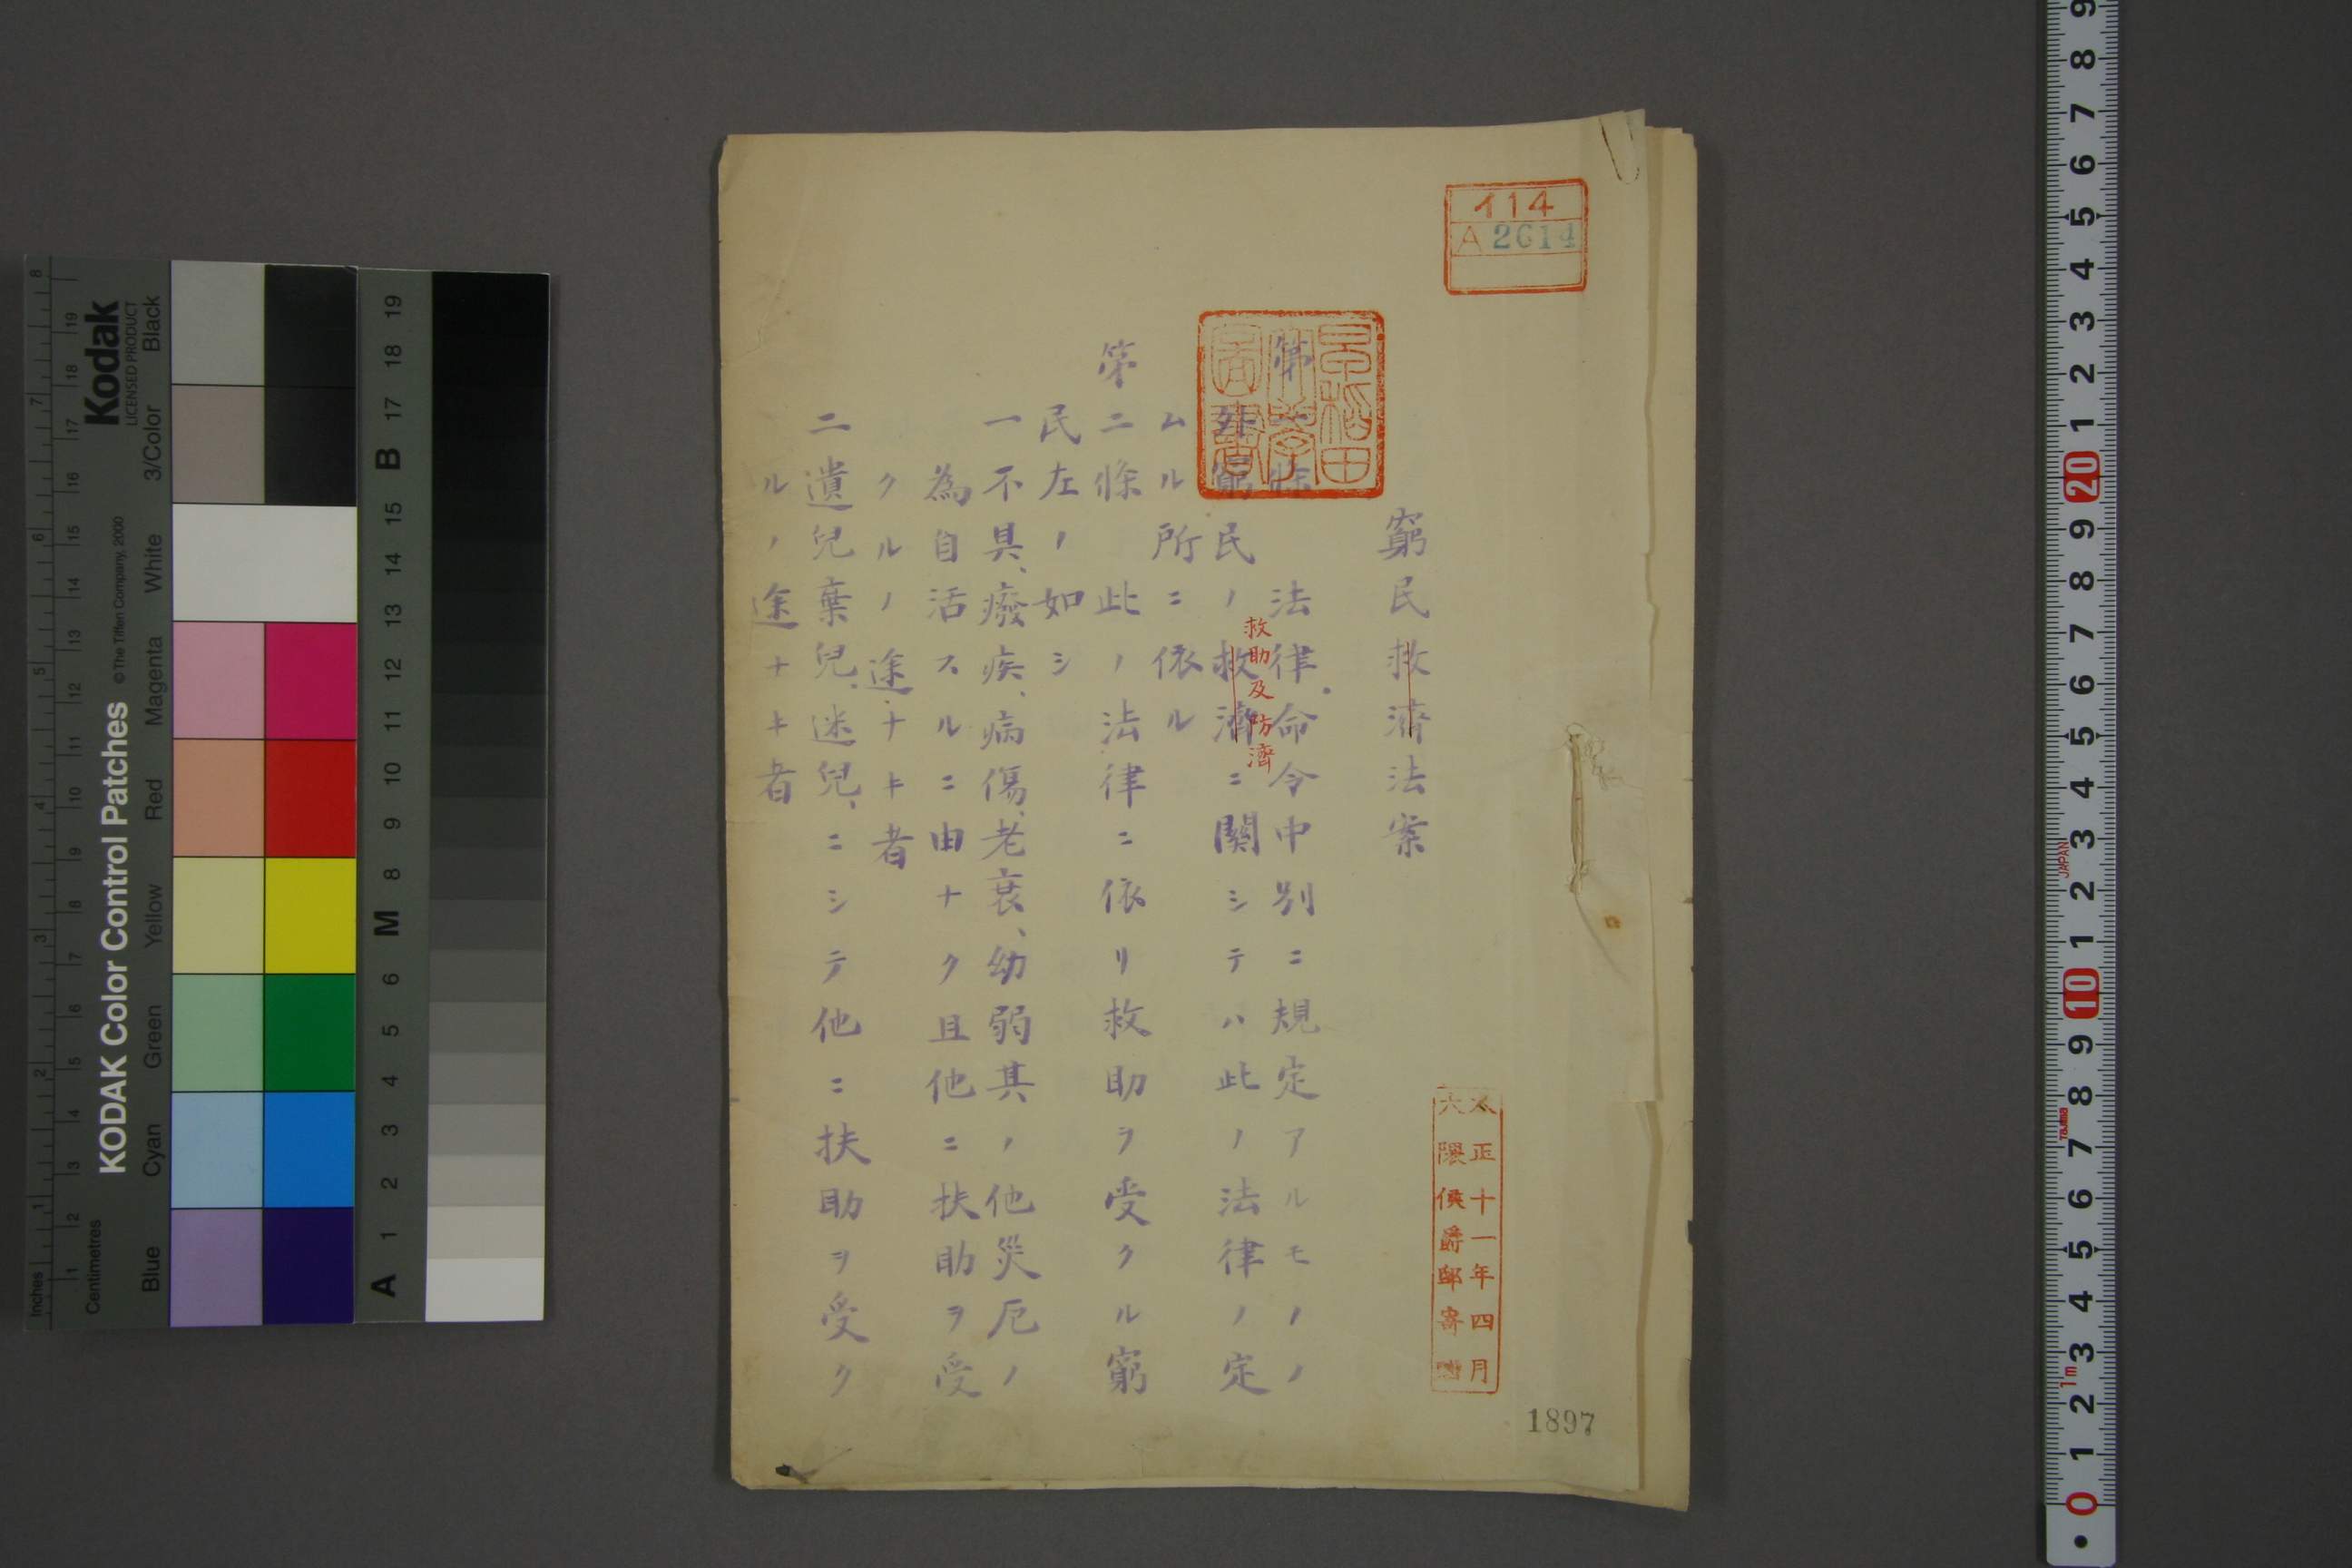 イ14
A 2614
早稲田
大學
圖書
窮民救濟法案
第一條 法律命令中別ニ規定アルモノノ
外窮民ノ救濟ニ關シテハ此ノ法律ノ定
救助及防濟
ムル所ニ依ル
第二條 此ノ法律ニ依リ救助ヲ受クル窮
民左ノ如シ
一不具、癈疾、病傷、老衰、幼弱其ノ他災厄ノ
為自活スルニ由ナク且他ニ扶助ヲ受
クルノ途ナキ者
二遺兒棄兒、迷兒、ニシテ他ニ扶助ヲ受ク
ルノ途ナキ者
大正十一年四月
大隈侯爵邸寄贈
1897
Kodak
LICENSED PRODUCT
KODAK Color Control Patches
©The Tiffen Company, 2000
Inches
Centimetres
Blue Cyan Green Yellow Red Magenta White 3/Color Black
1 2 3 4 5 6 7 8
1 2 3 4 5 6 7 8 9 10 11 12 13 14 15 16 17 18 19
A 1 2 3 4 5 6 M 8 9 10 11 12 13 14 15 B 17 18 19
0 1 2 3 4 5 6 7 8 9 10 1 2 3 4 5 6 7 8 9 20 1 2 3 4 5 6 7 8 9
1m
TAJIMA
JAPAN